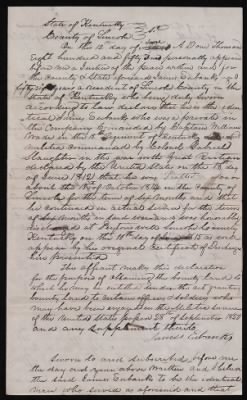 State of Kentucky
County of Lincoln } Sct
On this 12 day of June A Dom Thousand
Eight hundred and fifty five personally appeared
before me a Justice of the Peace within and for
the County & State aforesaid James Eubanks aged
fifty years a resident of Lincoln County in the
State of Kentucky who being duly sworn
according to law declares that he is the iden
tical James Eubanks who was a private in
the Company Commanded by Captain William
Wade in the Regiment of Kentucky
militia commanded by Colonel Gabriel
Slaughter in the war with Great Britain
declared by the United States on the 18 day
of June 1812 that he was on or
about the 15 of October 1814 in the County of
Lincoln for the term of six months and that
he continued in actual service for the term
of six months was honorably
discharged at
Kentucky on the day of 1815 as will
appear by his original certificate of Discharge
here presented
This affiant makes this declaration
for the purpose of obtaining the bounty land to
which he may be entitled under the act granting
bounty land to certain officers & soldiers who
may have been engaged in the military service
of the United States passed 28 of September 1850
and any supplement thereto
James Eubanks
Sworn to and subscribed before me
the day and year above written and I believe
the said James Eubanks to be the identical
man who served as aforesaid and that